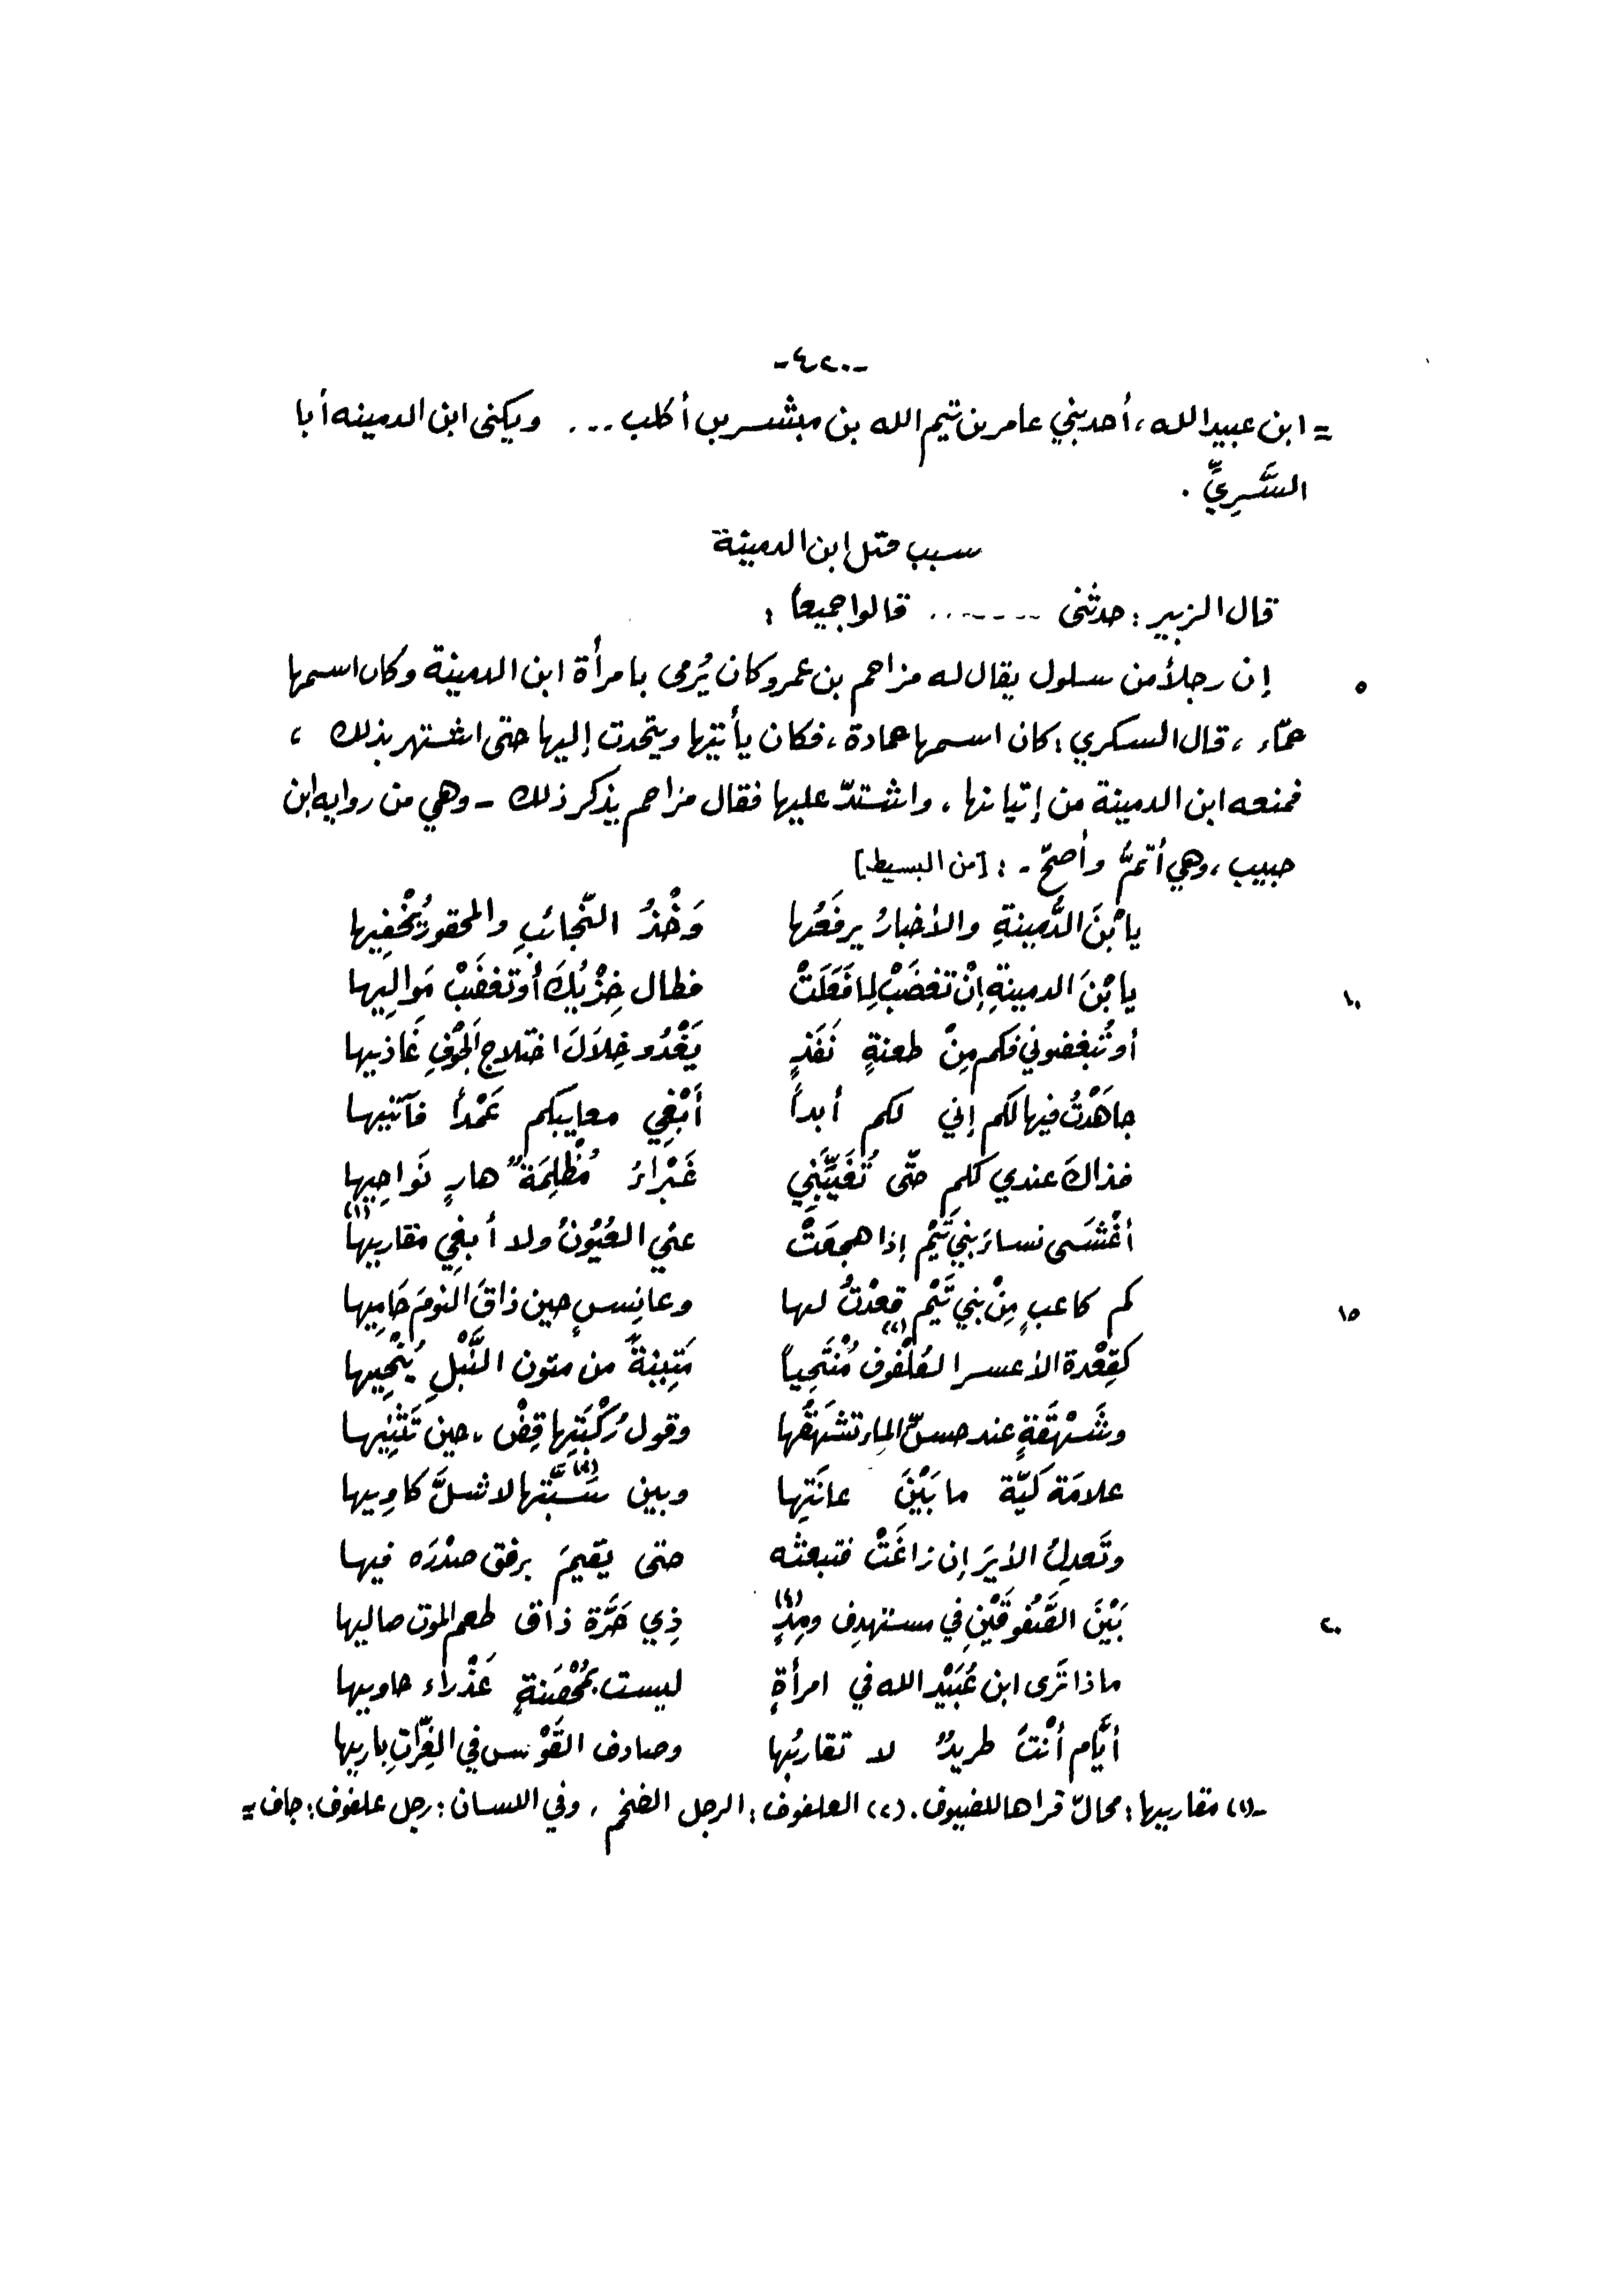 -٤٢٠-
= ابن عبيد الله، أحد بني عامر بن تيم الله بن مبشر بن أكلب ... ويكنى ابن الدمينه أبا
السَّرِيِّ .
سبب قتل ابن الدمينة
قال الزبير : حدثني ........ قالوا جميعاً :
٥ إن رجلاً من سلول يقال له مزاحم بن عمرو كان يُرمى بامرأة ابن الدمينة وكان اسمها
حمّاء ، قال السكري : كان اسمها حمادة ، فكان يأتيها ويتحدث إليها حتى اشتهر بذلك ،
فمنعه ابن الدمينة من إتيانها ، واشتدّ عليها فقال مزاحم يذكر ذلك - وهي من رواية ابن
حبيب ، وهي أتمّ وأصحّ - : [من البسيط]
يابْنَ الدُّمينةِ والأخبارُ يرفَعُها وَخْدُ النّجائبِ والمحقورُ يُخْفِيها
١٠ يابْنَ الدمينةِ إنْ تغضَبْ لِما فَعَلَتْ فطال خِزْيُكَ أو تغضَبْ مَوالِيها
أو تُبغضوني فكم مِنْ طعنةٍ نَفَذٍ يَغْذُو خِلاَلَ اختلاجِ الجَوْفِ غَاذيها
جاهَدْتُ فيها لكم إني لكم أبداً أَبْغِي معايبكم عَمْداً فآتيها
فذاكَ عندي لكم حتّى تُغَيِّبَنِي غَبْرَاءُ مُظْلِمَةٌ هارٍ نَواحِيها
أغْشَى نساءَ بني تَيْمٍ إذا هجعَتْ عني العُيُونُ ولا أبغي مقاريها (١)
١٥ كم كاعبٍ مِنْ بني تَيْمٍ قعدْتُ لها وعانِسٍ حين ذاقَ النومَ حَامِيها
كقِعْدة الأعسر العُلْفوف (٢) مُنْتَحِياً مَتِينةً من متون النَّبْلِ يُنْحِيها
وشَهْقَةٍ عند حسّ الماء تشهَقُها وقول رُكْبَتِها قِضْ ، حين تَثْنِيها
علامَة كَيّة ما بَيْنَ عانَتِها وبين سَبَّتِها (٣) لا شلَّ كاوِيها
وتَعدِلُ الأيرَ إن زاغَتْ فتبعثه حتى يقيمَ برفق صدْرَه فيها
٢٠ بَيْنَ الصَّفُوقَيْنِ في مستهدِف ومِدٍ (٤) ذِي حَرَّة ذاق طعم الموت صاليها
ماذا تَرى ابن عُبَيْد الله في امرأةٍ ليست بمُحْصَنةٍ عَذْراء حاويها
أيَّام أنْتَ طريدٌ لا تقاربُها وصادف القَوْسَ في الغِرّاتِ باريها
-(١) مقاريها : محالّ قراها للضيوف . (٢) العلفوف : الرجل الضخم ، وفي اللسان : رجل علفوف : جاف =